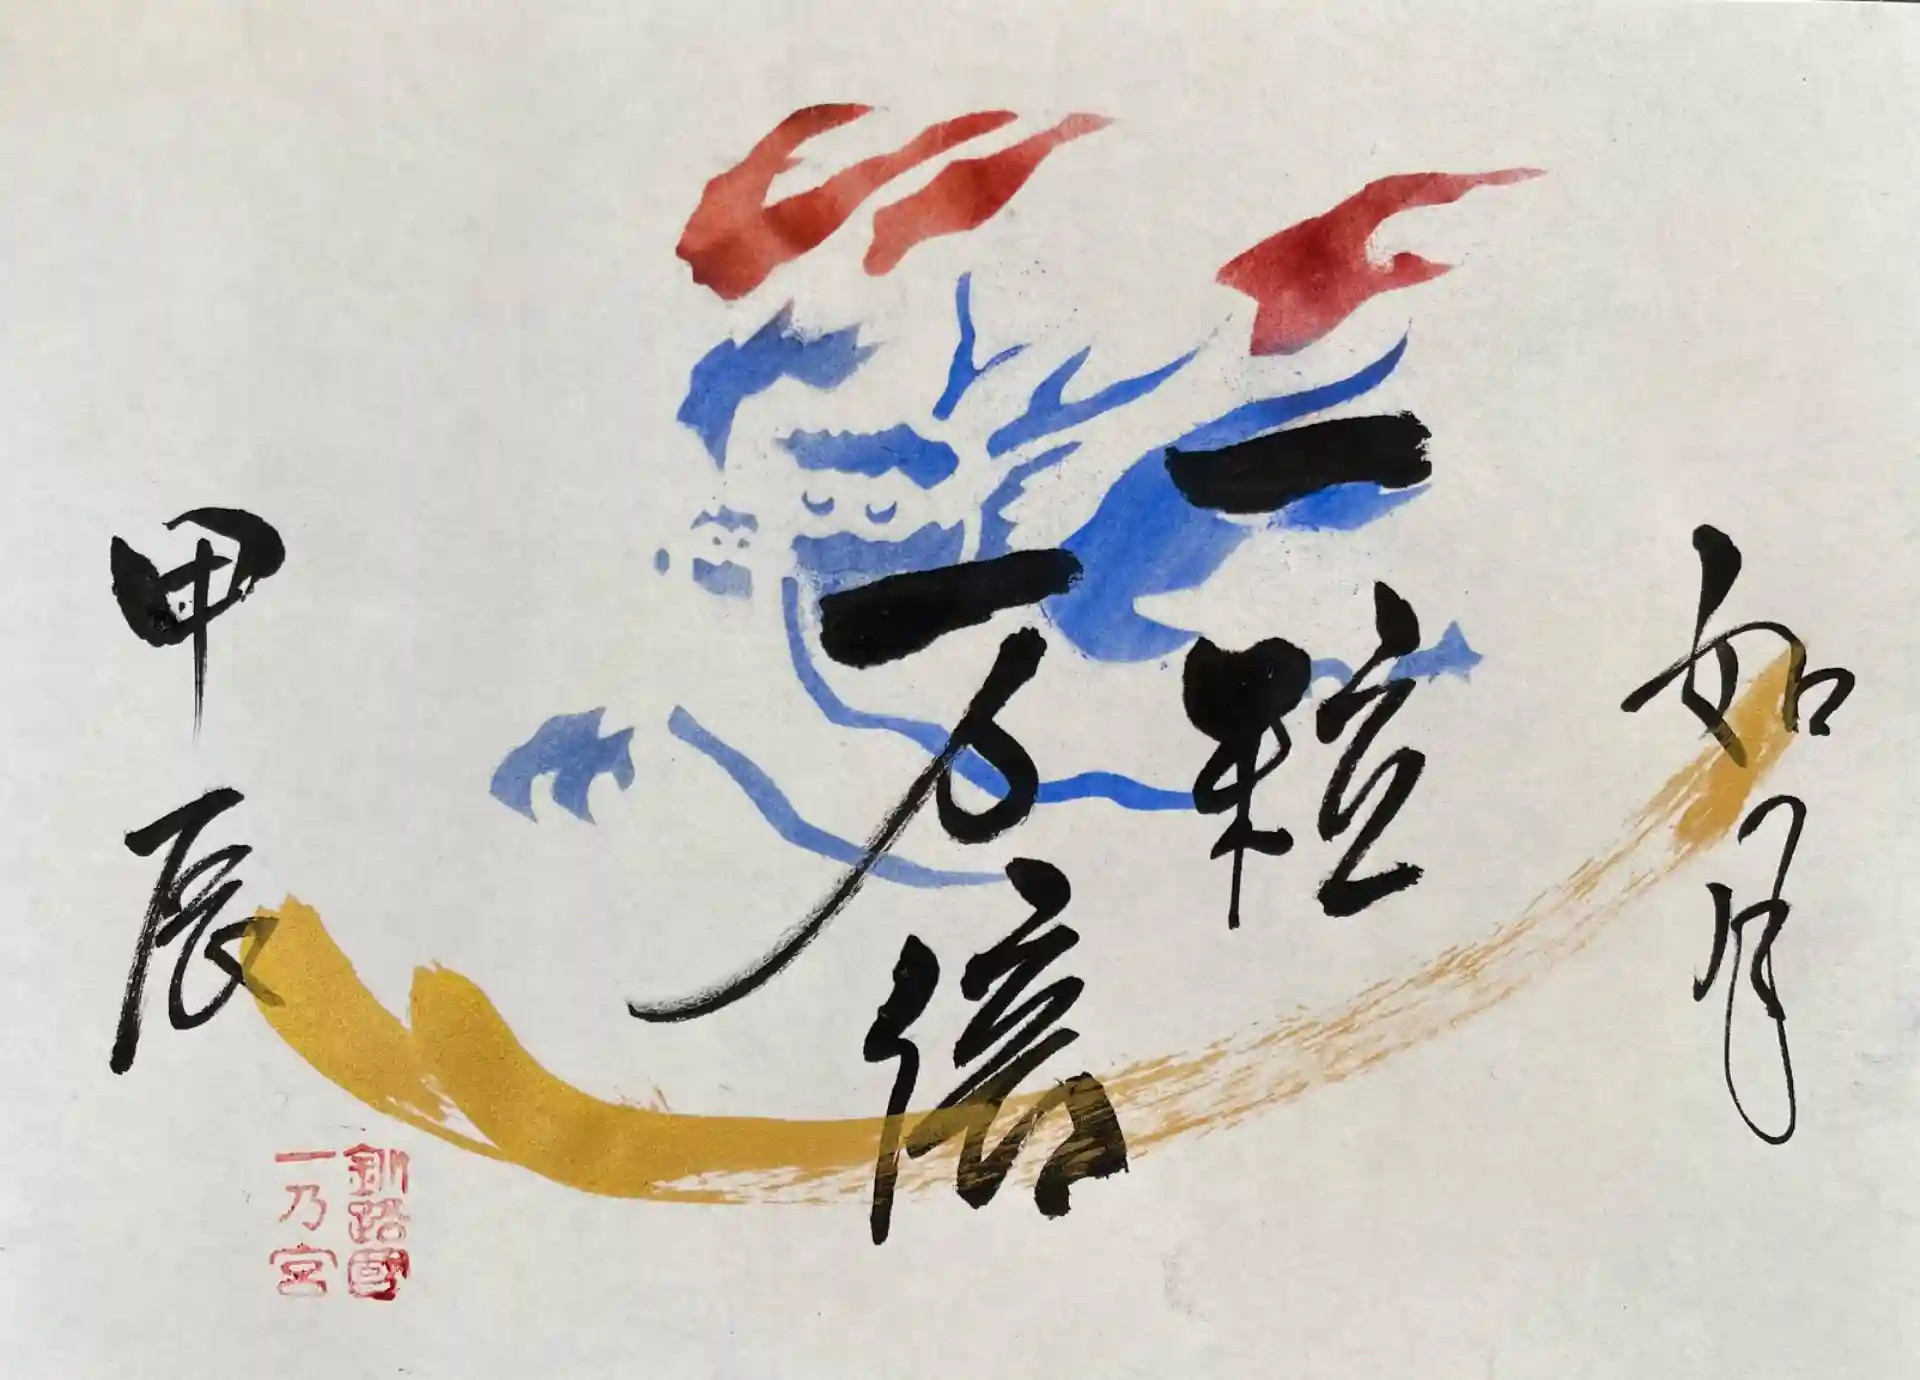 如月
一粒
一万倍
甲辰
釧路國
一乃宮